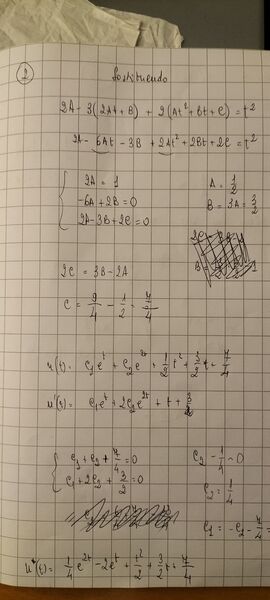 2
Sostituendo
2A - 3(2At + B) + 2(At² + Bt + C) = t²
2A - 6At - 3B + 2At² + 2Bt + 2C = t²
2A = 1
-6A + 2B = 0
2A - 3B + 2C = 0
A = 1/2
B = 3A = 3/2
2C = 3B - 2A
C = 9/4 - 1/2 = 7/4
u(t) = c₁e^t + c₂e^2t + 1/2 t² + 3/2 t + 7/4
u'(t) = c₁e^t + 2c₂e^2t + t + 3/2
c₁ + c₂ + 7/4 = 0
c₁ + 2c₂ + 3/2 = 0
c₂ - 1/4 = 0
c₂ = 1/4
c₁ = -c₂ - 7/4 =
u(t) = 1/4 e^2t - 2e^t + t²/2 + 3/2 t + 7/4